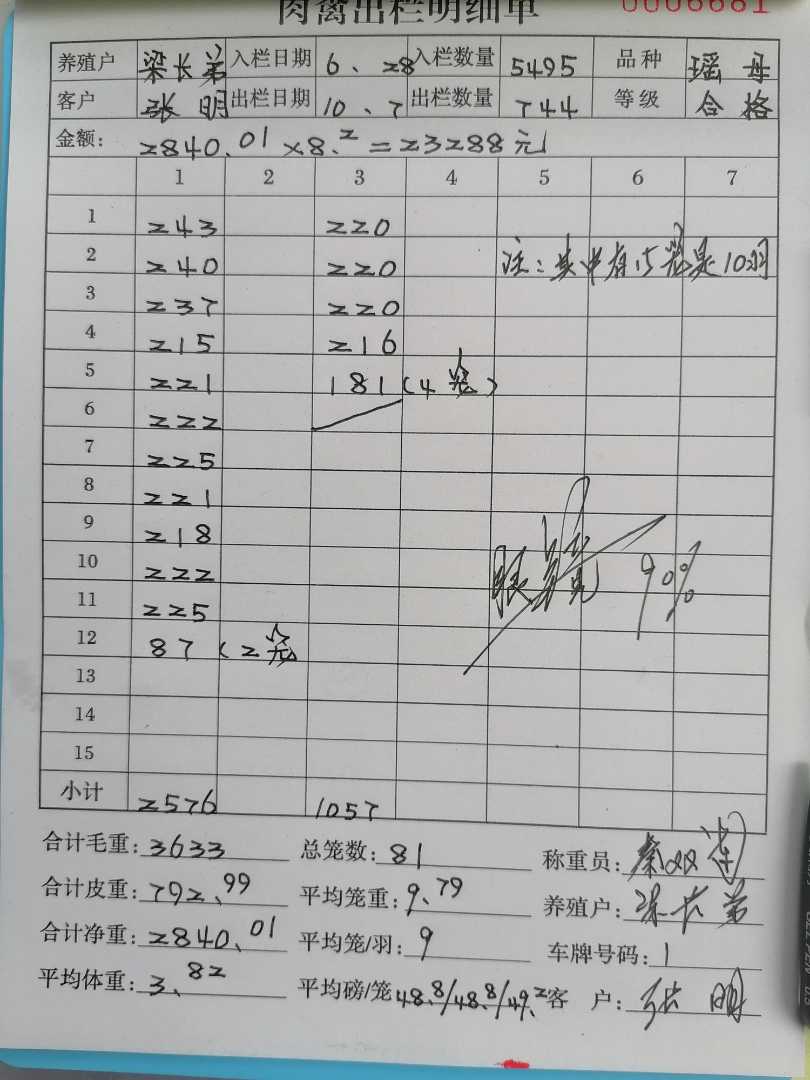 肉禽出栏明细单 0006681
养殖户 梁长弟 入栏日期 6、28 入栏数量 5495 品种 瑶母
客户 张明 出栏日期 10、7 出栏数量 744 等级 合格
金额： 2840.01×8.2=23288元
1 2 3 4 5 6 7
1 243 220
2 240 220 注：其中有15笼是10羽
3 237 220
4 215 216
5 221 181(4笼)
6 222
7 225
8 221
9 218
10 222
11 225 90%
12 87(2笼
13
14
15
小计 2576 1057
合计毛重：3633 总笼数：81 称重员：秦双
合计皮重：792.99 平均笼重：9.79 养殖户：梁长弟
合计净重：2840.01 平均笼/羽：9 车牌号码：1
平均体重：3.82 平均磅/笼 48.8/48.8/49.2 客户：张明